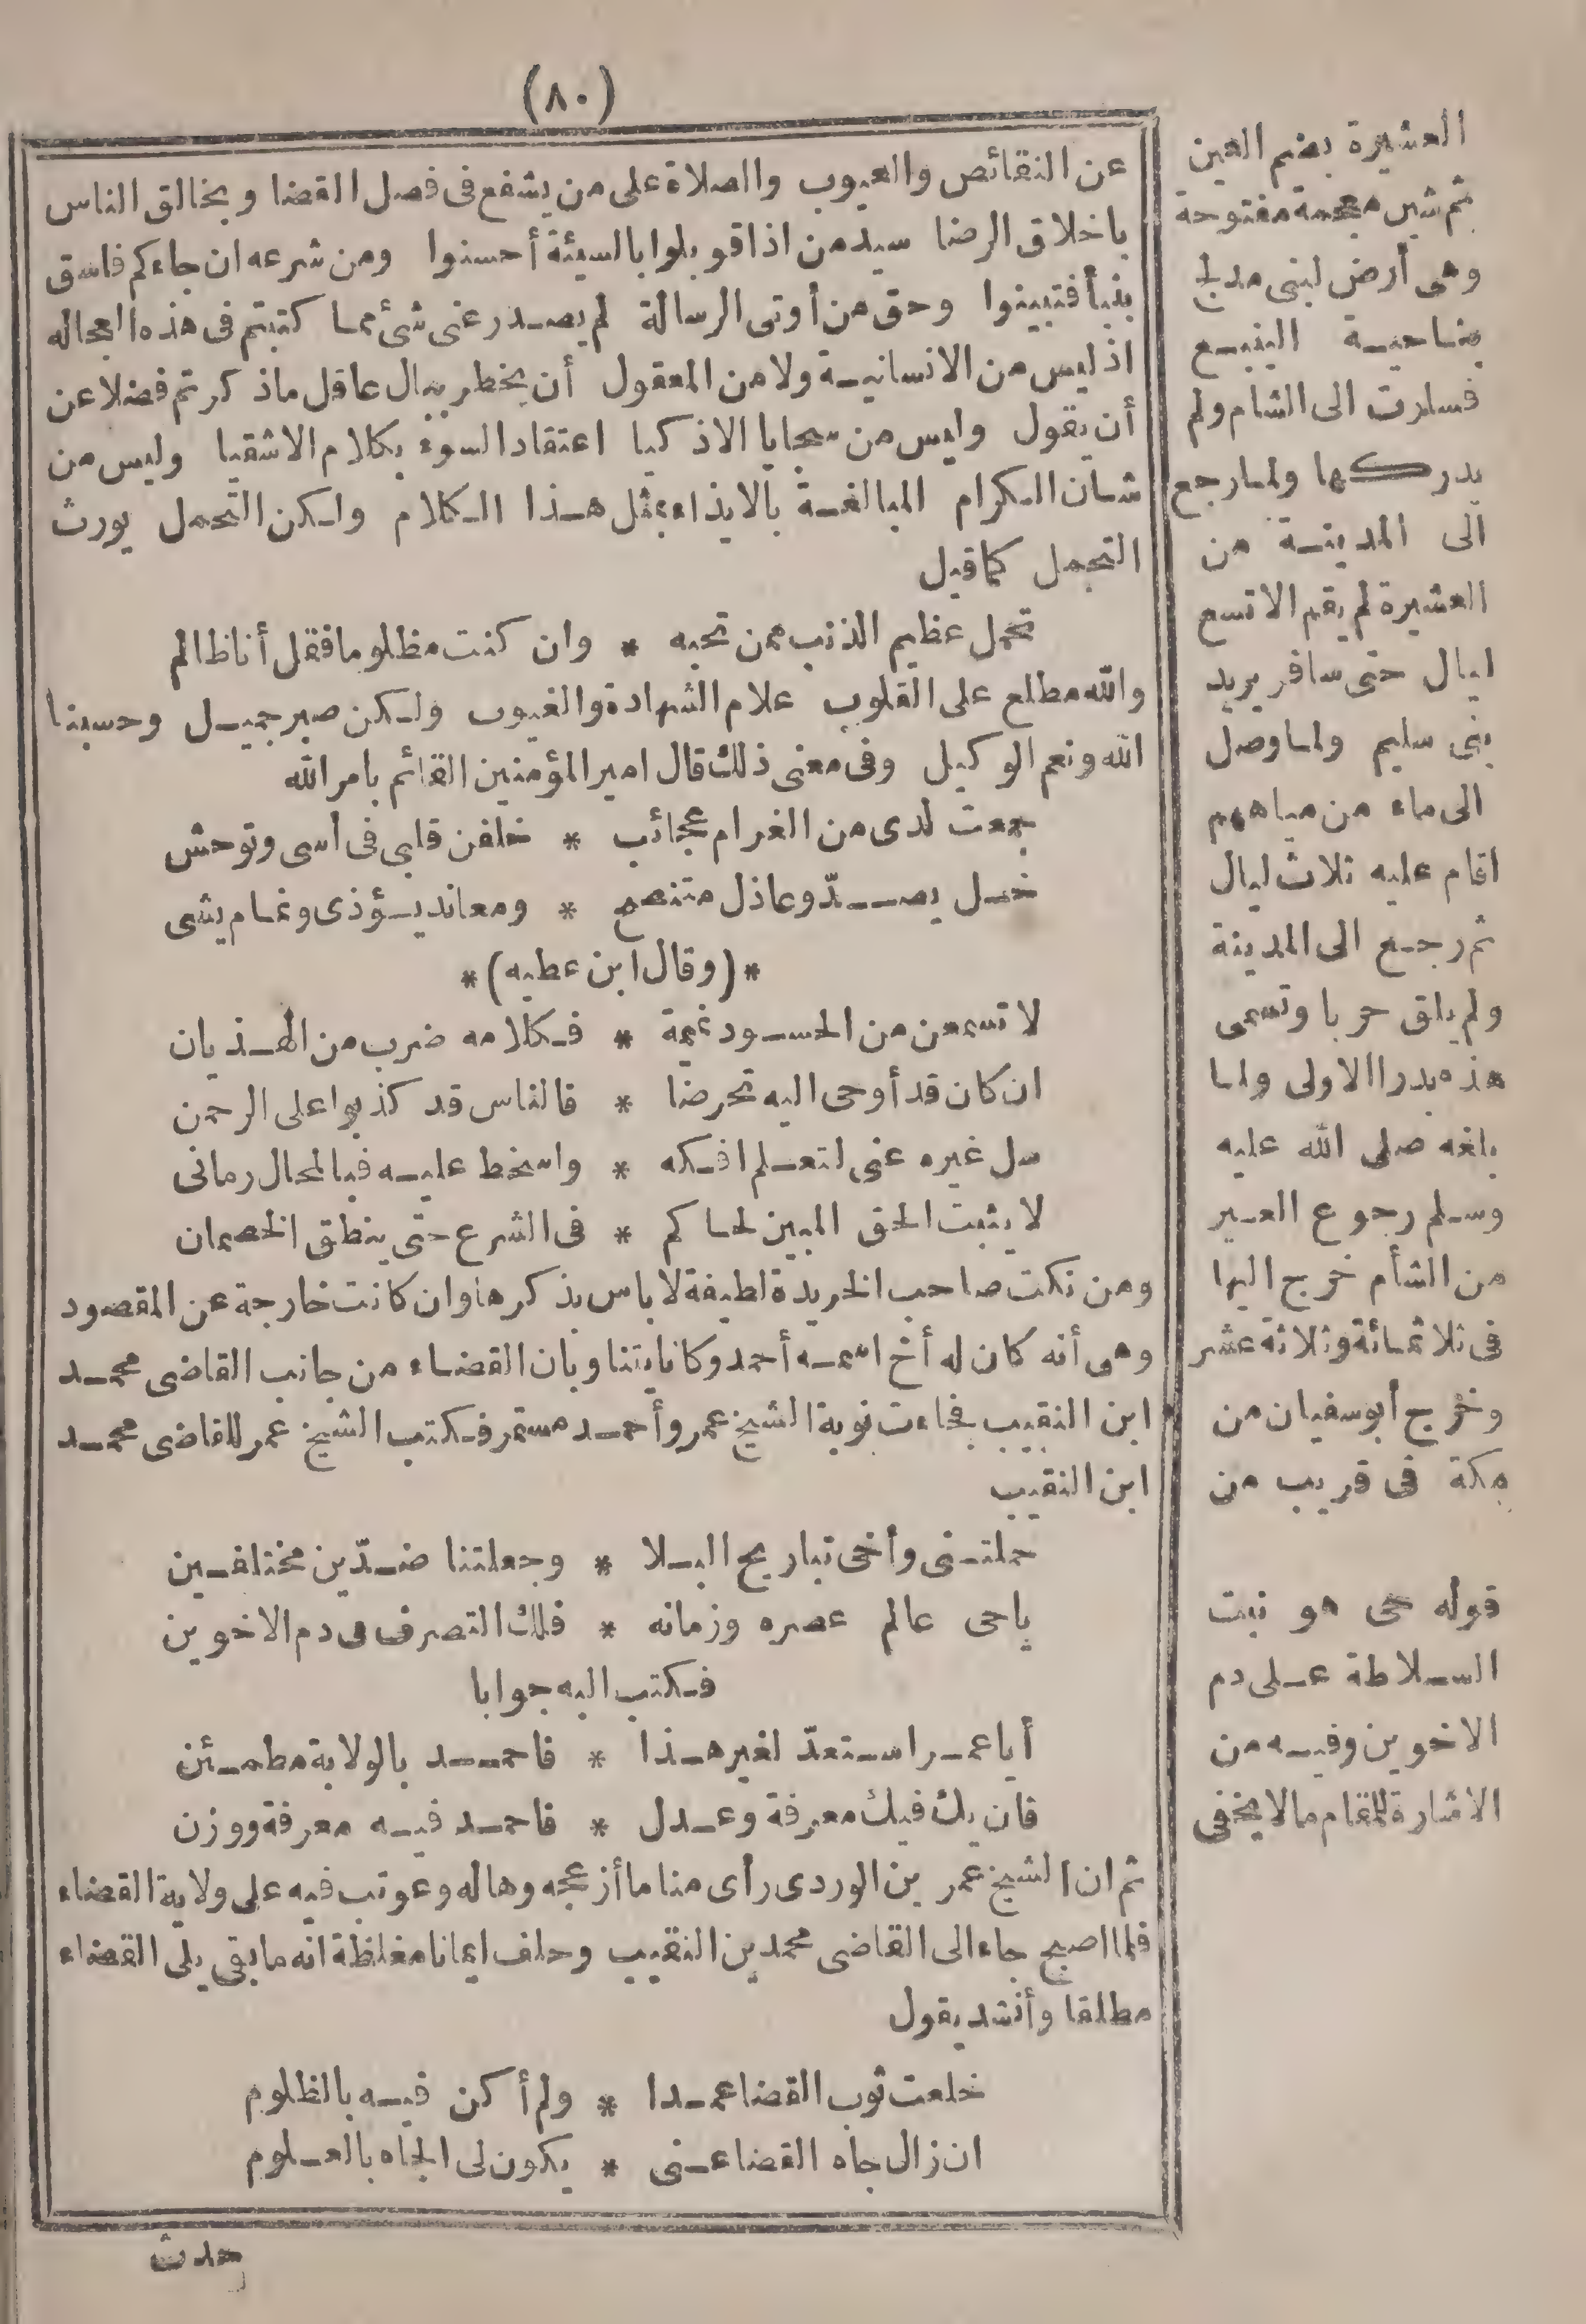 (٨٠)
عن النقائص والعيوب والصلاة على من يشفع فى فصل القضا ويخالق الناس
باخلاق الرضا سيد من اذا قوبلوا بالسيئة أحسنوا ومن شرعه ان جاءكم فاسق
بنبأ فتبينوا وحق من أوتى الرسالة لم يصدر عنى شئ مما كتبتم فى هذه العجاله
اذ ليس من الانسانية ولا من المعقول أن يخطر ببال عاقل ما ذكرتم فضلا عن
أن يقول وليس من سجايا الاذكيا اعتقاد السوء بكلام الاشقيا وليس من
شان الكرام المبالغة بالايذاء بمثل هذا الكلام ولكن التحمل يورث
التجمل كما قيل
تحمل عظيم الذنب ممن تحبه * وان كنت مظلوما فقل أنا ظالم
والله مطلع على القلوب علام الشهادة والغيوب ولكن صبر جميل وحسبنا
الله ونعم الوكيل وفى معنى ذلك قال امير المؤمنين القائم بامر الله
جمعت لدى من الغرام عجائب * خلفن قلبى فى أسى وتوحش
خل يصدّ وعاذل متنصح * ومعاند يؤذى ونمام يشى
*(وقال ابن عطيه)*
لا تسمعن من الحسود نميمة * فكلامه ضرب من الهذيان
ان كان قد أوحى اليه تحرضا * فالناس قد كذبوا على الرحمن
سل غيره عنى لتعلم افكه * واسخط عليه فبالمحال رمانى
لا يثبت الحق المبين لحاكم * فى الشرع حتى ينطق الخصمان
ومن نكت صاحب الخريدة لطيفة لا باس بذكرها وان كانت خارجة عن المقصود
وهى أنه كان له أخ اسمه أحمد وكانا يتناوبان القضاء من جانب القاضى محمد
ابن النقيب فجاءت نوبة الشيخ عمر وأحمد مستمر فكتب الشيخ عمر للقاضى محمد
ابن النقيب
حملتنى وأخى تباريح البلا * وجعلتنا ضدّين مختلفين
ياحى عالم عصره وزمانه * فلك التصرف فى دم الاخوين
فكتب اليه جوابا
أيا عمر استعدّ لغير هذا * فاحمد بالولاية مطمئن
فان يك فيك معرفة وعدل * فاحمد فيه معرفة ووزن
ثم ان الشيخ عمر بن الوردى رأى مناما أزعجه وهاله وعوتب فيه على ولاية القضاء
فلما اصبح جاء الى القاضى محمد بن النقيب وحلف ايمانا مغلظة انه ما بقى يلى القضاء
مطلقا وأنشد يقول
خلعت ثوب القضا عمدا * ولم أكن فيه بالظلوم
ان زال جاه القضا عنى * يكون لى الجاه بالعلوم
حدث
العشيرة بضم العين
ثم شين معجمة مفتوحة
وهى أرض لبنى مدلج
بناحية الينبع
فسارت الى الشام ولم
يدركها ولما رجع
الى المدينة من
العشيرة لم يقم الا تسع
ليال حتى سافر يريد
بنى سليم ولما وصل
الى ماء من مياههم
اقام عليه ثلاث ليال
ثم رجع الى المدينة
ولم يلق حربا وتسمى
هذه بدرا الاولى ولما
بلغه صلى الله عليه
وسلم رجوع العير
من الشأم خرج اليها
فى ثلاثمائة وثلاثة عشر
وخرج أبو سفيان من
مكة فى قريب من
قوله حى هو نبت
السلاطة على دم
الاخوين وفيه من
الاشارة للمقام ما لا يخفى